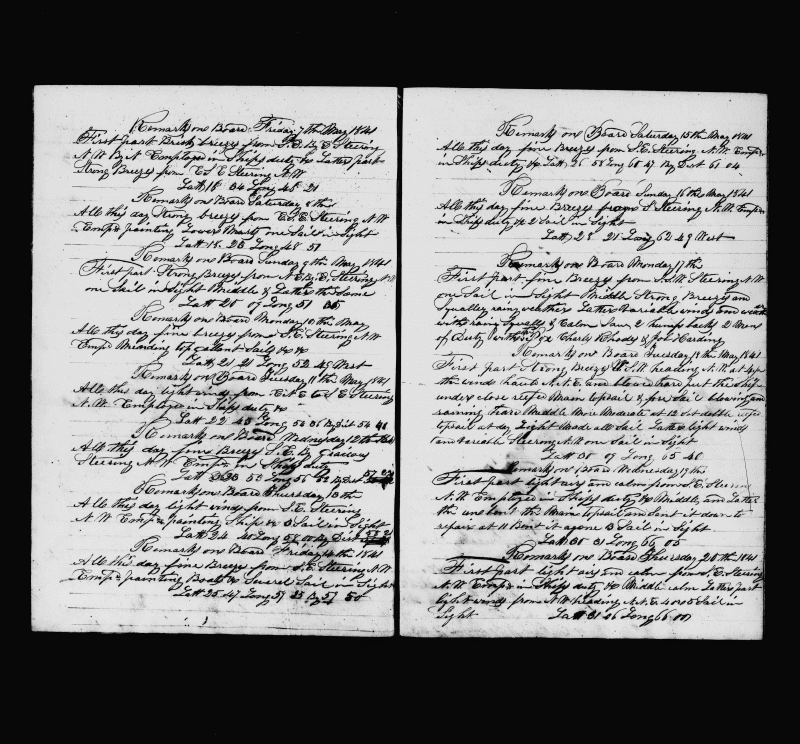 Remarks on Board Friday 7th May 1841
First part Brisk breezes from S.E. By E. Steering
N.W By N Employed in Ships duty &c Latter part
Strong Breezes from E.S.E Steering N.W
Latt 18 04 Long 48 21
Remarks on Board Saturday 8 this
All this day Strong breezes from E.S.E Steering N.W
Empd painting Lower Masts one Sail in Sight
Latt 18. 25 Long 48 51
Remarks on Board Sunday 9th May 1841
First part Strong Breezes from N.E. By E. Steering N.W
one Sail in Sight Middle & Latter the Same
Latt 20 07 Long 51 05
Remarks on Board Monday 10th May
All this day fine breezes from S.E. Steering N.W
Empd Mending top gallant Sails &c &c
Latt 21 21 Long 52 49 West
Remarks on Board Tuesday 11th May 1841
All this day light winds from E. Steering
N.W. Employed in Ships duty &c
Latt 22 43 Long 54 06 By Dist 54
Remarks on Board Wednesday 12th
All this day fine Breezes S.E. By
Steering N.W Empd in Ships duty
Latt 23 52 Long 56 52 By Dist
Remarks on Board Thursday 13th
All this day light winds from S.E. Steering
N.W Empd painting Ship &c 3 Sail in Sight
Latt 24 Long By Dist
Remarks on Board Friday 14th 1841
All this day fine Breezes from S.E Steering N.W
Empd painting Boats &c Several Sail in Sight
Latt 25 47 Long 57 33 By 57 50
Remarks on Board Saturday 15th May 1841
All this day fine Breezes from S.E. Steering N.W. Empd
in Ships duty &c Latt 26 58 Long 60 47 By Dist 61 04
Remarks on Board Sunday 16th May 1841
All this day fine Breezes from S Steering N.W. Empd
in Ships duty &c 2 Sail in Sight
Latt 28 21 Long 62 49 West
Remarks on Board Monday 17th
First part fine Breezes from S.S.W. Steering N.W
one Sail in Sight Middle Strong Breezes and
Squally rainy weather Latter Variable winds and
with rain Squalls & Calm Saw 2 humpbacks 2 Men
of Duty (with Charly Rhody & Joe Harding
Remarks on Board Tuesday 18th May 1841
First part Strong Breezes S.W. heading N.W. at 4 pm
the wind hauld N.N.E. and blowed hard put the Ship
under close reefed Main topsail & fore Sail blowing and
raining hard Middle More Moderate at 12 Set double reefed
topsail at day Light Made all Sail Latter light winds
and variable Steering N.W one Sail in Sight
Latt 30 07 Long 65 40
Remarks on Board Wednesday 19th
First part light airs and calm from S.E. Steering
N.W Employed in Ships duty &c Middle and Latter
the unbent the Main topsail and Sent it down to
repair at 11 Bent it agane 3 Sail in Sight
Latt 30 31 Long 66 05
Remarks on Board Thursday 20th 1841
First part light airs and calm from S.E. Steering
N.W Empd in Ships duty &c Middle calm Latter part
light winds from N.W heading N.N.E. 4 or 5 Sail in
Sight Latt 31 06 Long 66 00